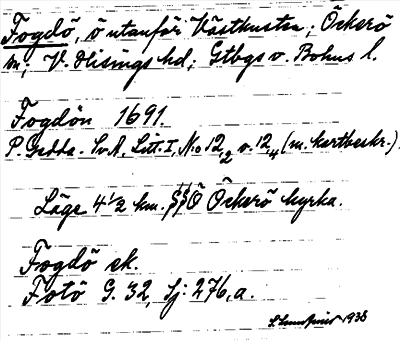 Fogdö, ö utanför Västkusten; Öckerö
sn, V. Hisings hd; Gtbgs o. Bohus l.
Fogdön 1691.
P. Gedda. Sv.A, Litt. I, N:o 12,2 o. 12,4 (m. kortbeskr.).
Läge 4 1/2 km. SSÖ Öckerö kyrka.
Fogdö ek.
Fotö G. 32, Sj: 276, a.
1938